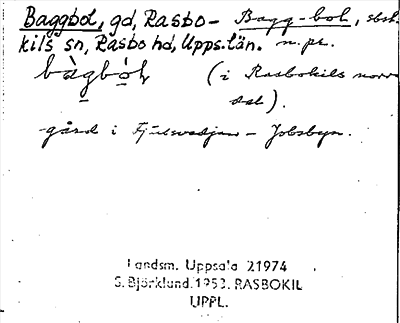 Baggbol, gd, Rasbo- Bagg-bol, sbst.
kils sn, Rasbo hd, Upps. län. n. pl.
bàgból (i Rasbokils norra
del).
gård i Fjuksvedjan - Jobsbyn.
Landsm. Uppsala 21974
S. Björklund. 1953. RASBOKIL
UPPL.